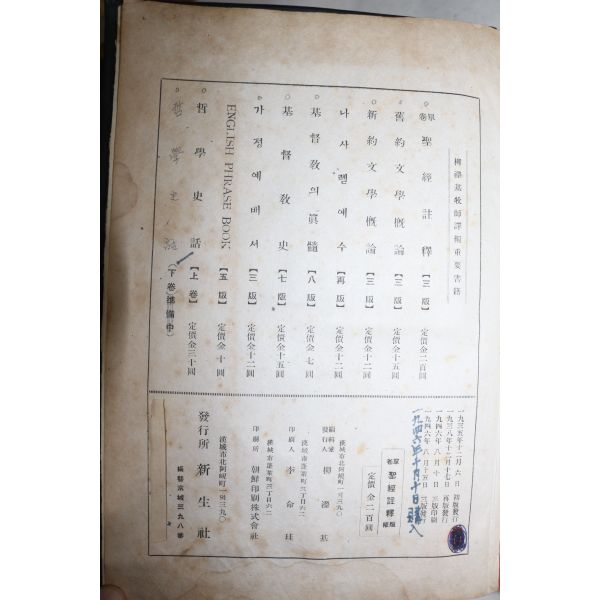 柳瀅基牧師譯編重要書籍
單卷 聖經註釋 【三版】 定價金二百圓
舊約文學槪論 【三版】 定價金十五圓
新約文學槪論 【三版】 定價金十二圓
나사렛예수 【再版】 定價金十二圓
基督敎의眞髓 【八版】 定價金七圓
基督敎史 【七版】 定價金十五圓
가정예배서 【三版】 定價金十二圓
ENGLISH PHRASE BOOK 【五版】 定價金十圓
哲學史話 【上卷】 定價金三十圓
哲學史話 (下卷)準備中
一九三五年十二月六日 初版發行
一九三八年十二月十七日 再版發行
一九四六年八月十日 三版印刷
一九四六年八月十五日 三版發行
一九四六年十月十日購入
單卷 聖經註釋
定價金二百圓
漢城市北阿峴町一의三九〇
編輯兼發行人 柳瀅基
漢城市蓬萊町三丁目六二
印刷人 李命珏
漢城市蓬萊町三丁目六二
印刷所 朝鮮印刷株式會社
漢城市北阿峴町一의三九〇
發行所 新生社
振替京城三九八番